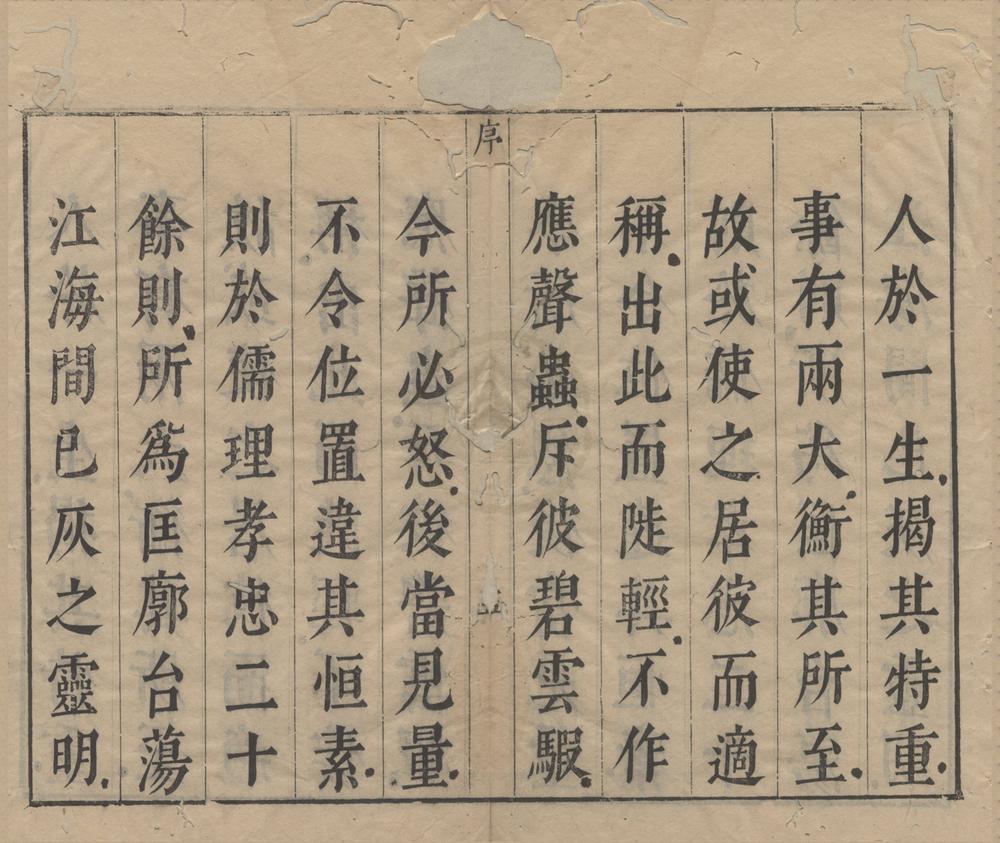 人於一生揭其特重
事有兩大衡其所至
故或使之居彼而適
稱出此而陡輕不作
應聲蟲斥彼碧雲騢
序
今所必怒後當見量
不令位置違其恒素
則於儒理孝忠二十
餘則所爲匡廓台蕩
江海間已灰之靈明